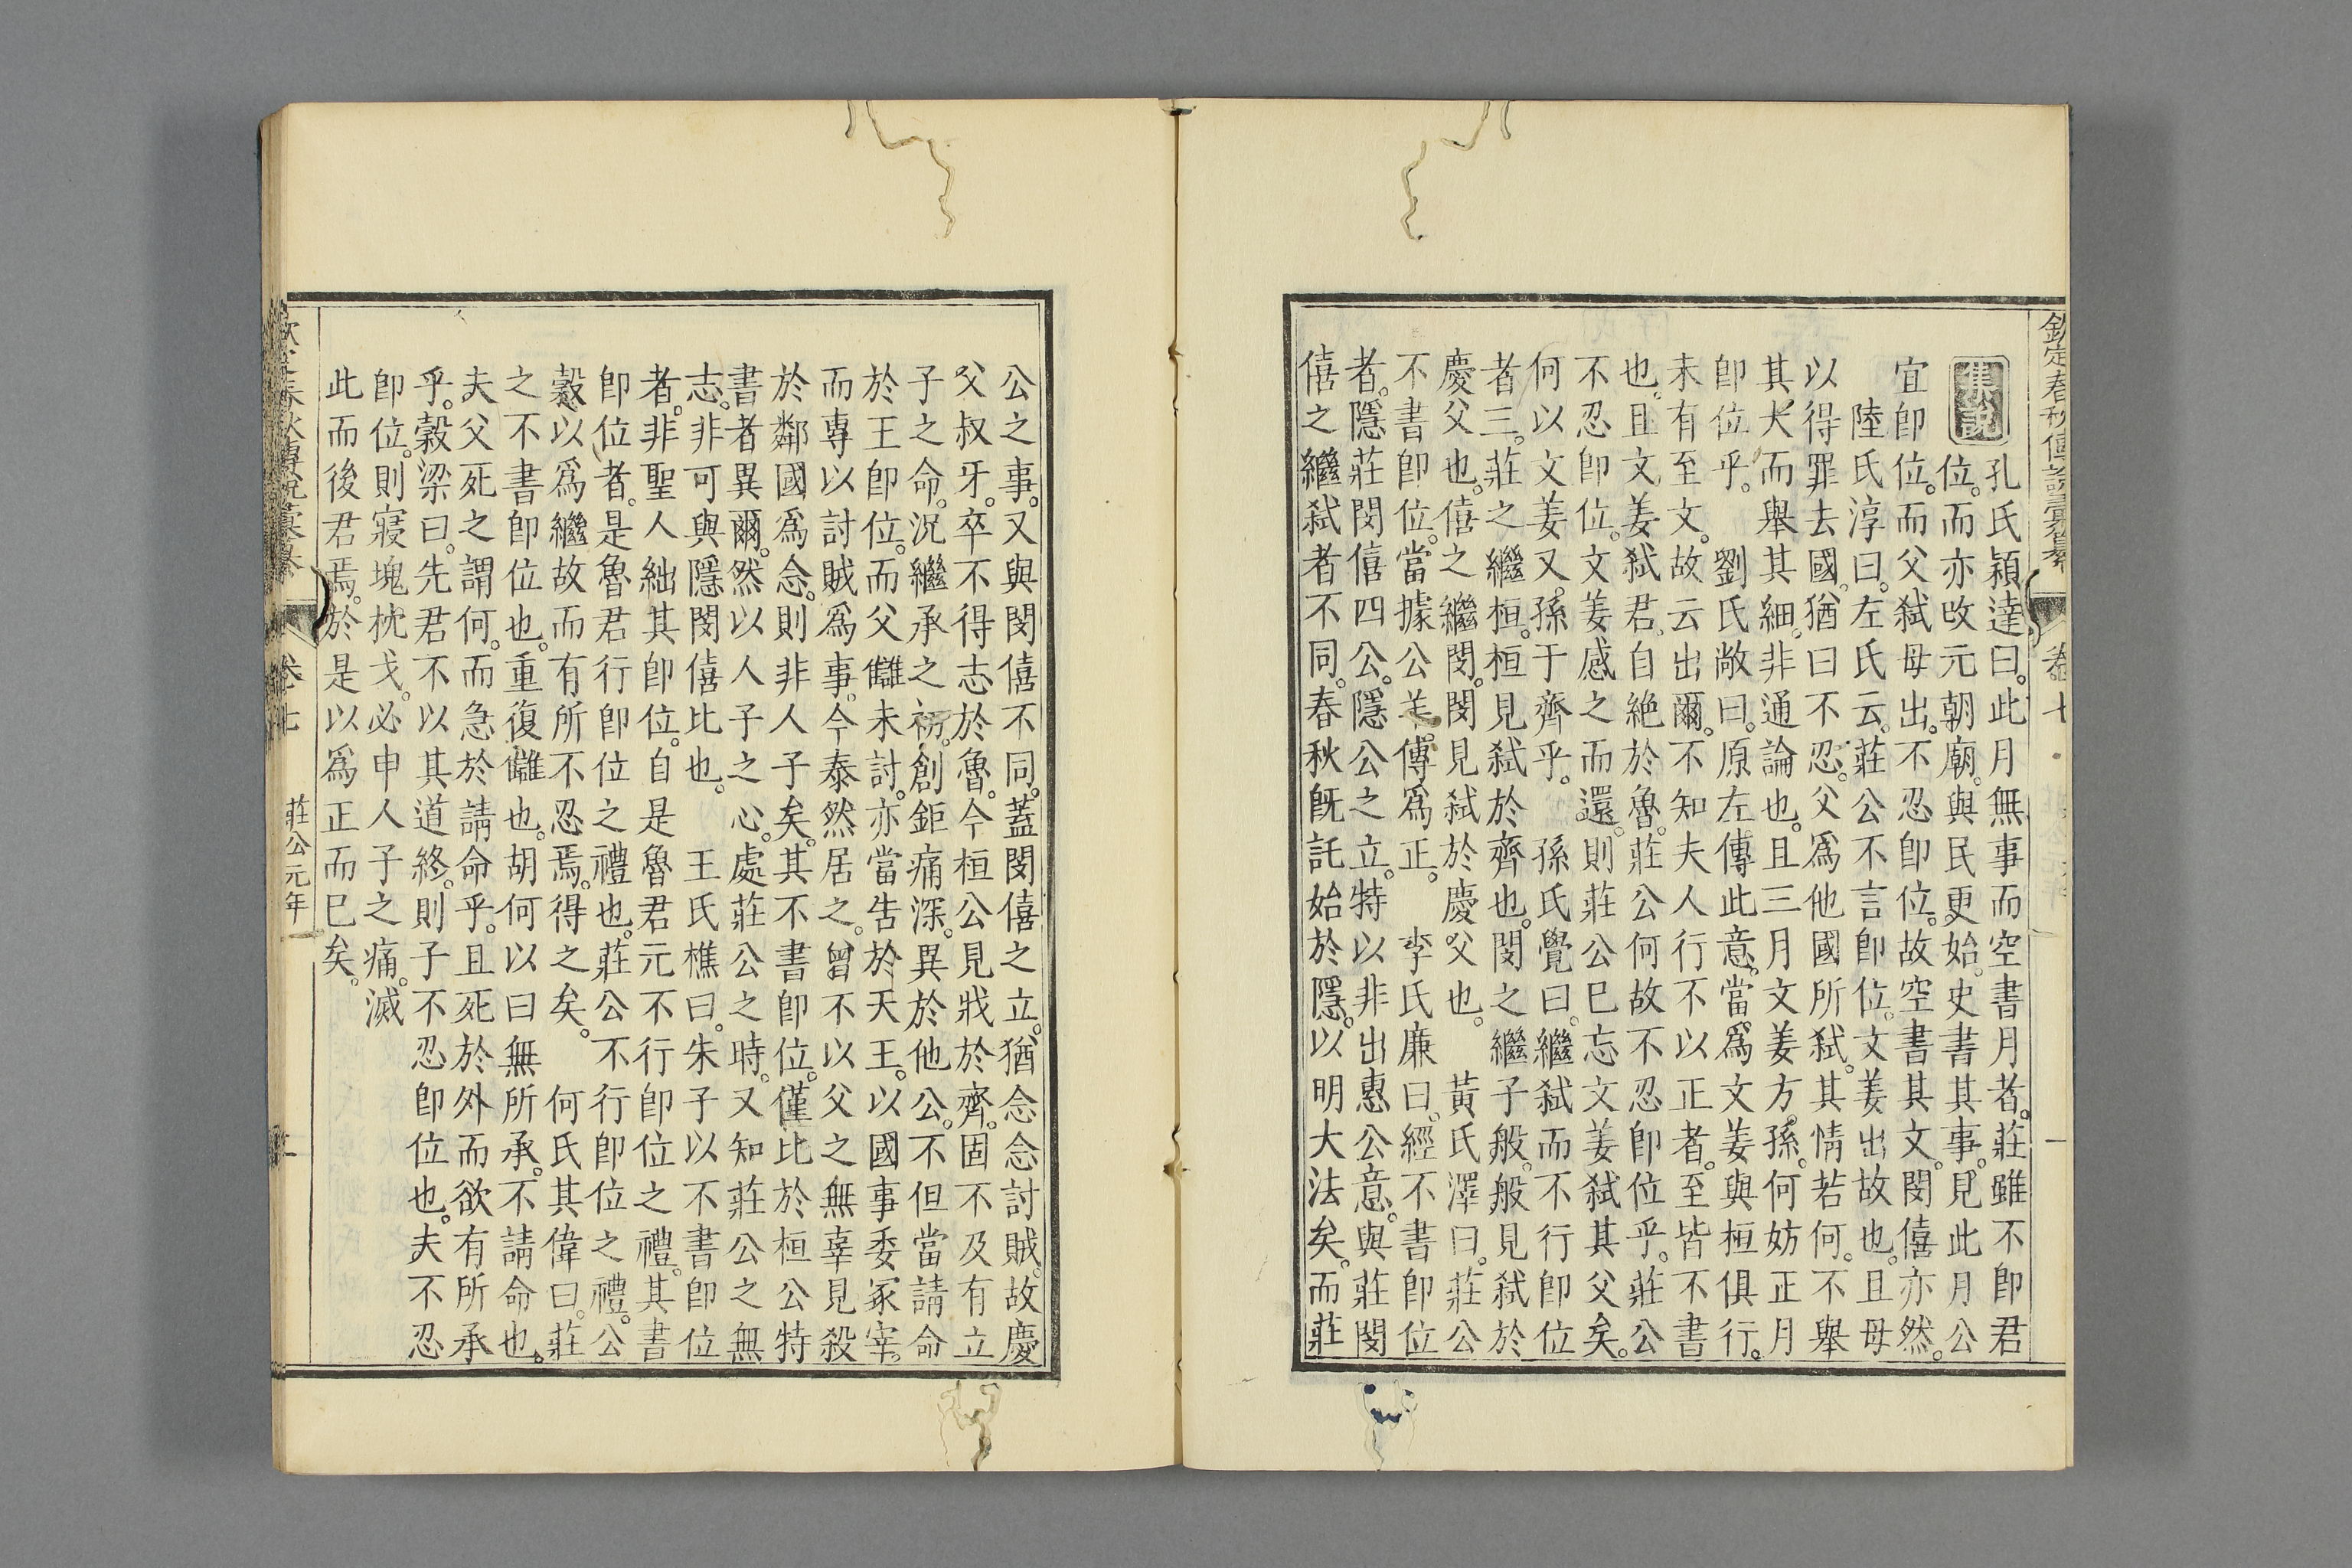 欽定春秋傳說彙纂 卷七 一
集說
孔氏穎達曰。此月無事而空書月者。莊雖不卽君
位。而亦改元朝廟。與民更始。史書其事。見此月公
宜卽位。而父弑母出。不忍卽位。故空書其文。閔僖亦然。
陸氏淳曰。左氏云。莊公不言卽位。文姜出故也。且母
以得罪去國。猶曰不忍。父爲他國所弑。其情若何。不舉
其大而舉其細。非通論也。且三月文姜方孫。何妨正月
卽位乎。 劉氏敞曰。原左傳此意。當爲文姜與桓俱行。
未有至文。故云出爾。不知夫人行不以正者。至皆不書
也。且文姜弑君。自絕於魯。莊公何故不忍卽位乎。莊公
不忍卽位。文姜感之而還。則莊公已忘文姜弑其父矣。
何以文姜又孫于齊乎。 孫氏覺曰。繼弑而不行卽位
者三。莊之繼桓。桓見弑於齊也。閔之繼子般。般見弑於
慶父也。僖之繼閔。閔見弑於慶父也。 黃氏澤曰。莊公
不書卽位。當據公羊傳爲正。 李氏廉曰。經不書卽位
者。隱莊閔僖四公。隱公之立。特以非出惠公意。與莊閔
僖之繼弑者不同。春秋旣託始於隱。以明大法矣。而莊
公之事。又與閔僖不同。蓋閔僖之立。猶念念討賊。故慶
父叔牙。卒不得志於魯。今桓公見戕於齊。固不及有立
子之命。況繼承之初。創鉅痛深。異於他公。不但當請命
於王卽位。而父讎未討。亦當告於天王。以國事委冢宰。
而專以討賊爲事。今泰然居之。曾不以父之無辜見殺
於鄰國爲念。則非人子矣。其不書卽位。僅比於桓公特
書者異爾。然以人子之心。處莊公之時。又知莊公之無
志。非可與隱閔僖比也。 王氏樵曰。朱子以不書卽位
者。非聖人絀其卽位。自是魯君元不行卽位之禮。其書
卽位者。是魯君行卽位之禮也。莊公不行卽位之禮。公
穀以爲繼故而有所不忍焉。得之矣。 何氏其偉曰。莊
之不書卽位也。重復讎也。胡何以曰無所承。不請命也。
夫父死之謂何。而急於請命乎。且死於外而欲有所承
乎。穀梁曰。先君不以其道終。則子不忍卽位也。夫不忍
卽位。則寢塊枕戈。必申人子之痛。滅
此而後君焉。於是以爲正而已矣。
欽定春秋傳說彙纂 卷七 莊公元年